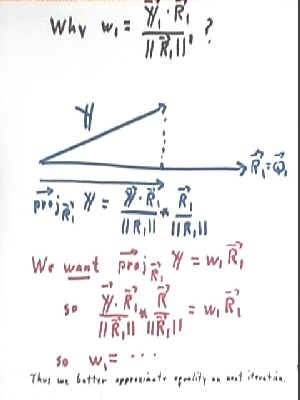 Why w₁ = (Y⃗ · R⃗₁) / ||R⃗₁||² ?
Y
R⃗₁ = Q⃗₁
proj_R⃗₁ Y = (Y⃗ · R⃗₁) / ||R₁|| * R⃗₁ / ||R₁||
We want proj_R⃗₁ Y = w₁ R⃗₁
so (Y⃗ · R⃗₁) / ||R⃗₁|| * R⃗ / ||R⃗₁|| = w₁ R⃗₁
so w₁ = ...
Thus we better approximate equality on next iteration.